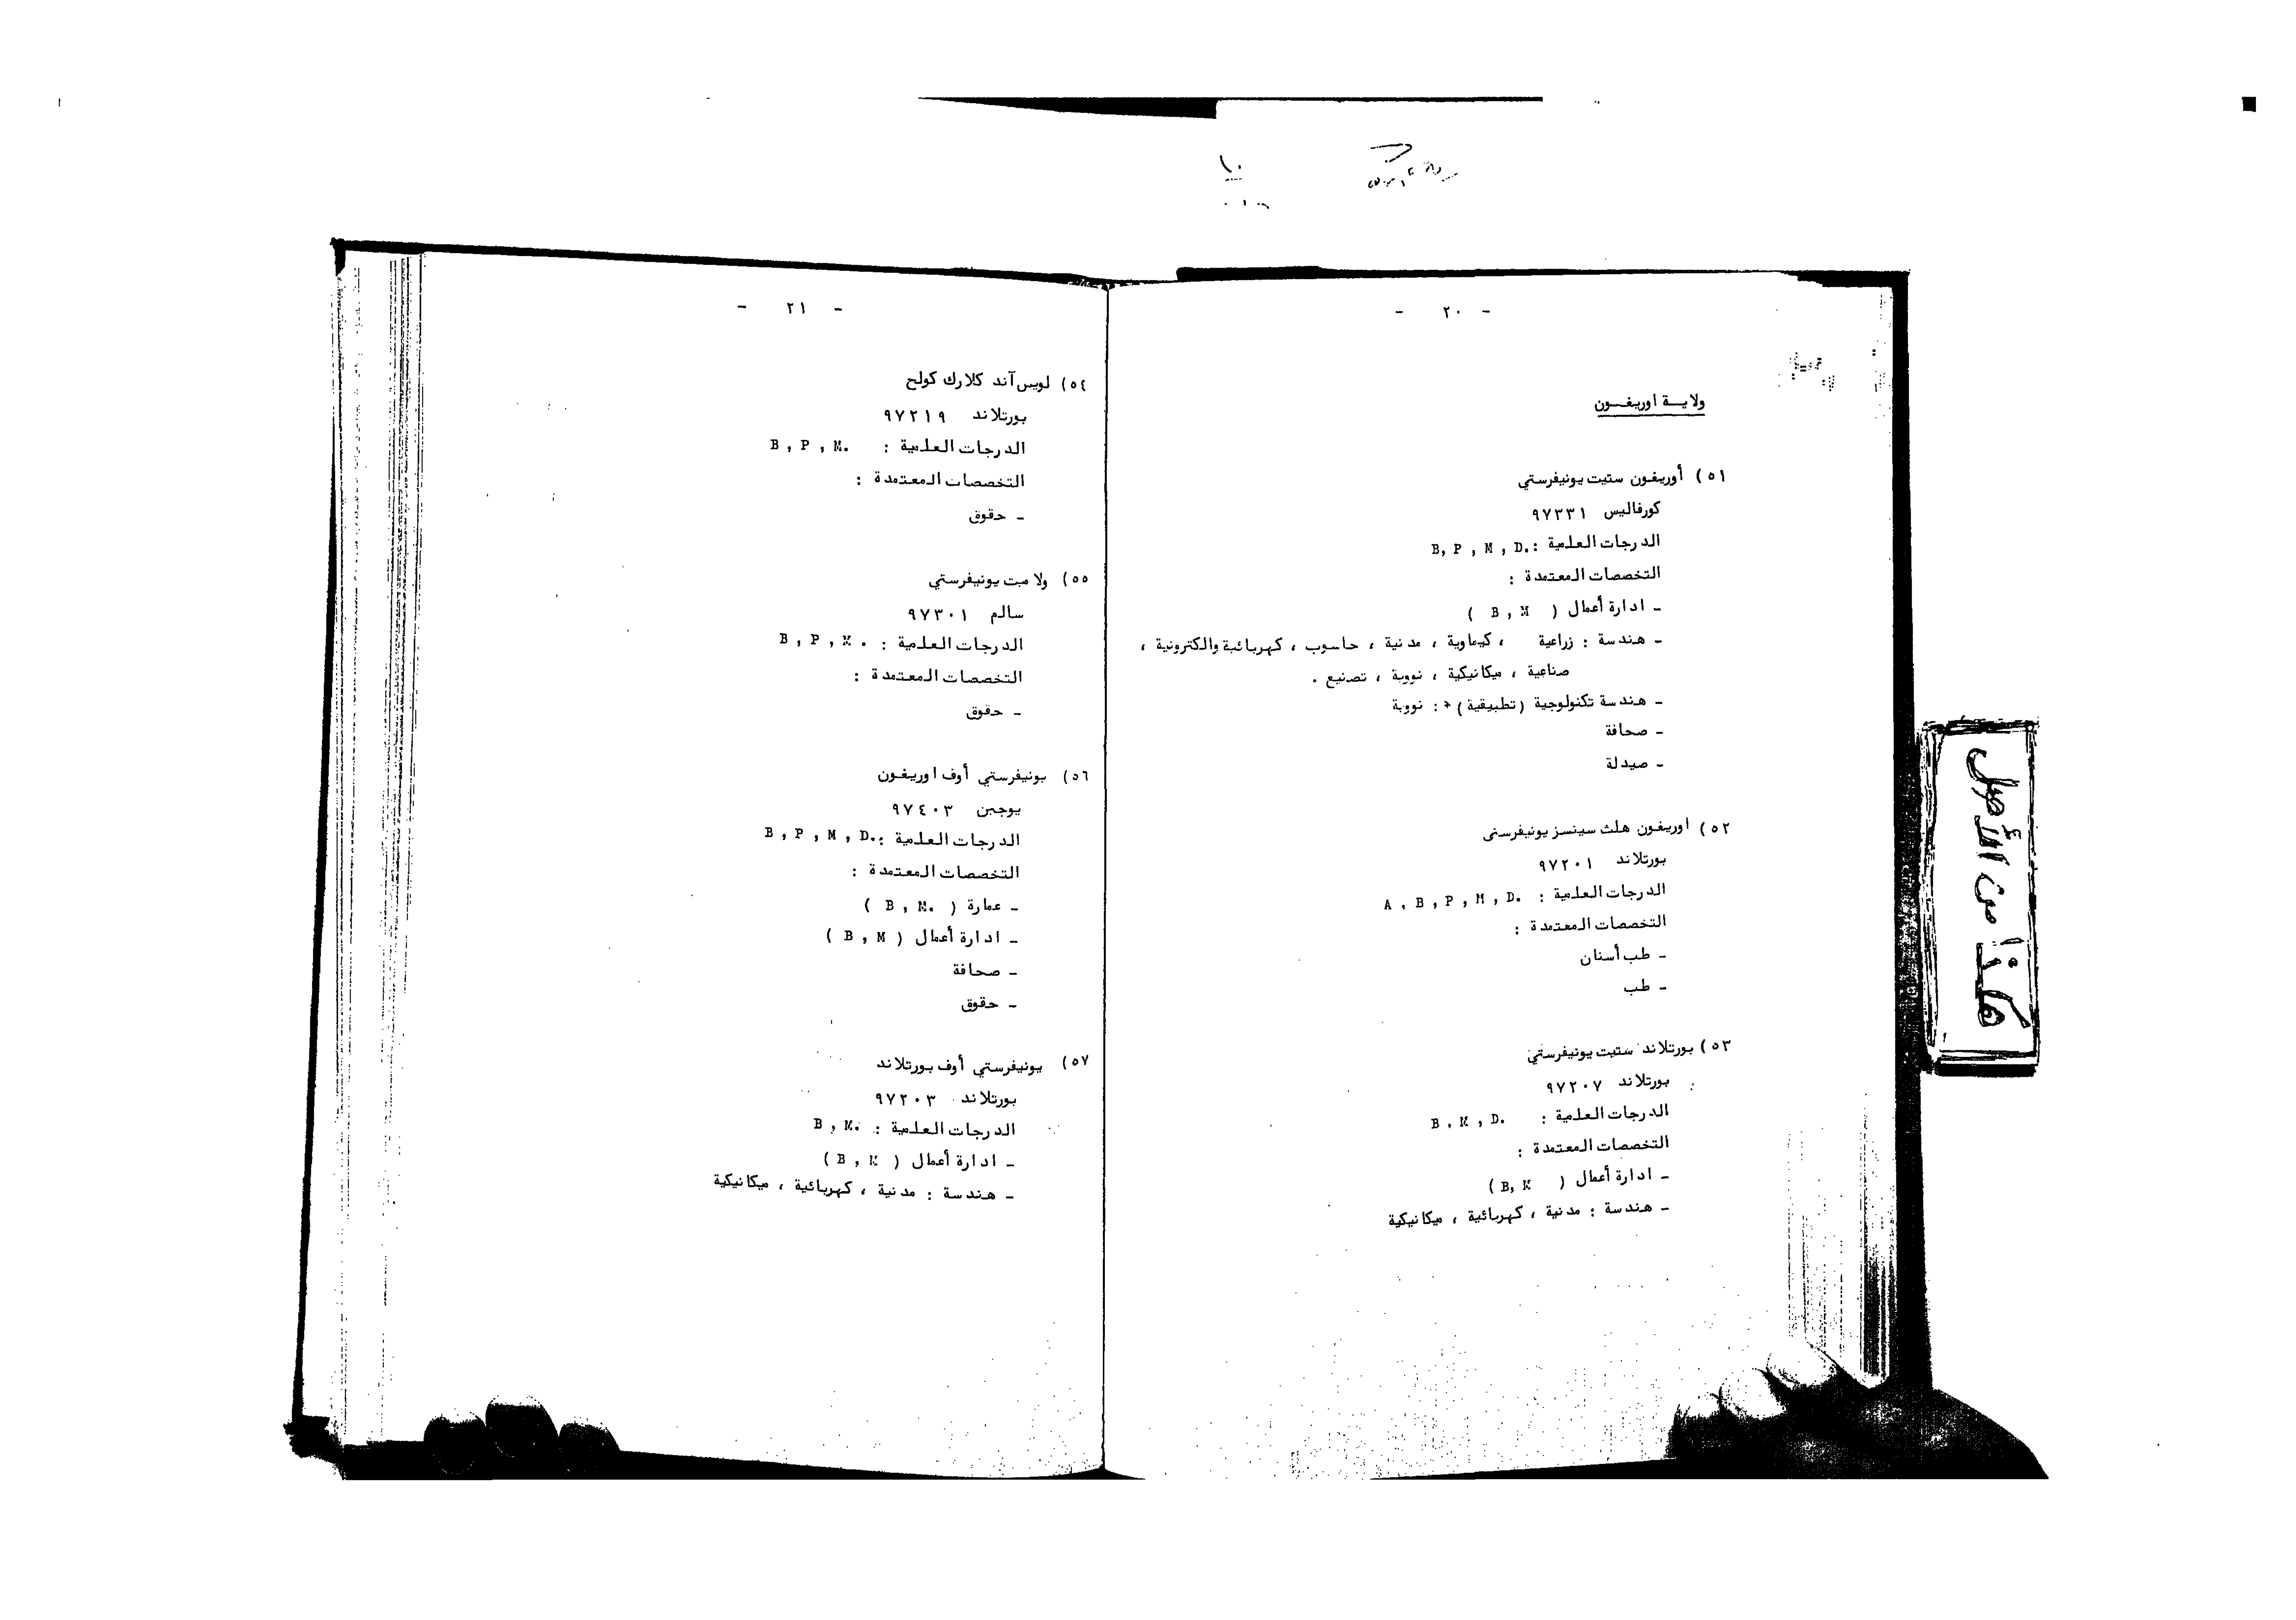 - ٢٠ -
ولايـــة اوريغــون
٥١) أوريغون ستيت يونيفرستي
كورفاليس ٩٧٣٣١
الدرجات العلمية : B, P , M , D.
التخصصات المعتمدة :
- ادارة أعمال ( B , M )
- هندسة : زراعية ، كيماوية ، مدنية ، حاسوب ، كهربائية والكترونية ،
صناعية ، ميكانيكية ، نووية ، تصنيع .
- هندسة تكنولوجية (تطبيقية) * : نووية
- صحافة
- صيدلة
٥٢) اوريغون هلث سينسز يونيفرستي
بورتلاند ٩٧٢٠١
الدرجات العلمية : A , B , P , M , D.
التخصصات المعتمدة :
- طب أسنان
- طب
٥٣) بورتلاند ستيت يونيفرستي
بورتلاند ٩٧٢٠٧
الدرجات العلمية : B , M , D.
التخصصات المعتمدة :
- ادارة أعمال ( B, M )
- هندسة : مدنية ، كهربائية ، ميكانيكية
- ٢١ -
٥٤) لويس آند كلارك كولج
بورتلاند ٩٧٢١٩
الدرجات العلمية : B , P , M.
التخصصات المعتمدة :
- حقوق
٥٥) ولامت يونيفرستي
سالم ٩٧٣٠١
الدرجات العلمية : B , P , M .
التخصصات المعتمدة :
- حقوق
٥٦) يونيفرستي أوف اوريغون
يوجين ٩٧٤٠٣
الدرجات العلمية : B , P , M , D.
التخصصات المعتمدة :
- عمارة ( B , M. )
- ادارة أعمال ( B , M )
- صحافة
- حقوق
٥٧) يونيفرستي أوف بورتلاند
بورتلاند ٩٧٢٠٣
الدرجات العلمية : B , M.
- ادارة أعمال ( B , M )
- هندسة : مدنية ، كهربائية ، ميكانيكية
هكذا من الأصل